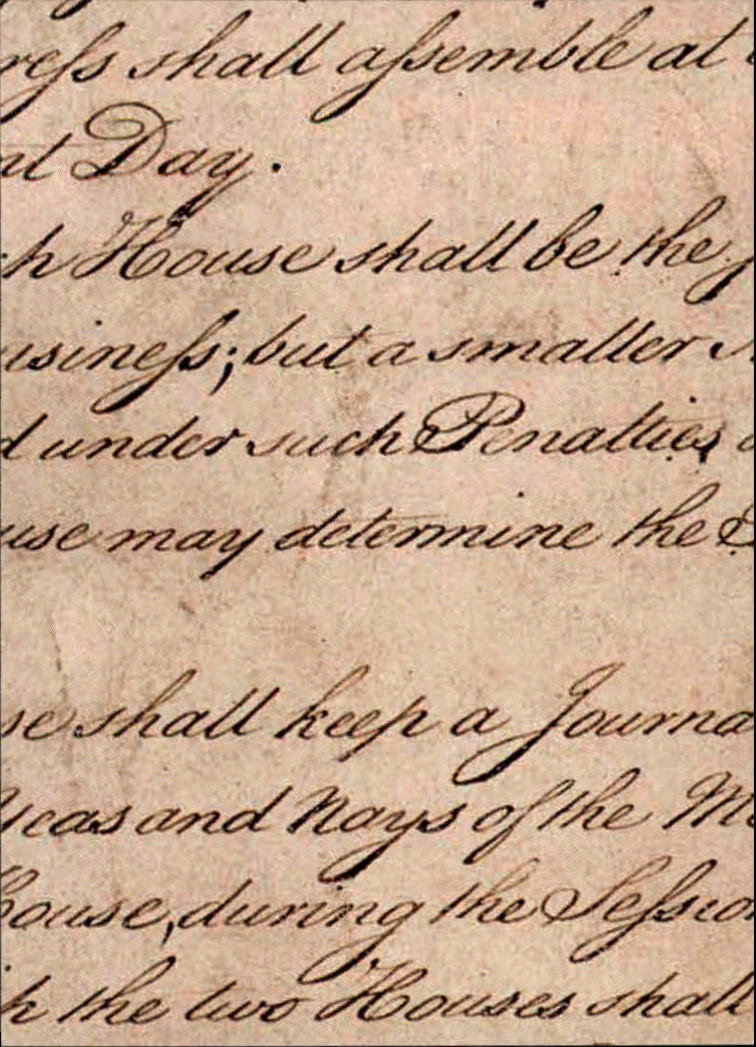 reſs shall aſsemble at
nt Day.
ch House shall be the
usineſs; but a smaller
d under such Penalties
use may determine the
se shall keep a Journa
Yeas and Nays of the Me
house, during the Seſsio
h the two Houses shall